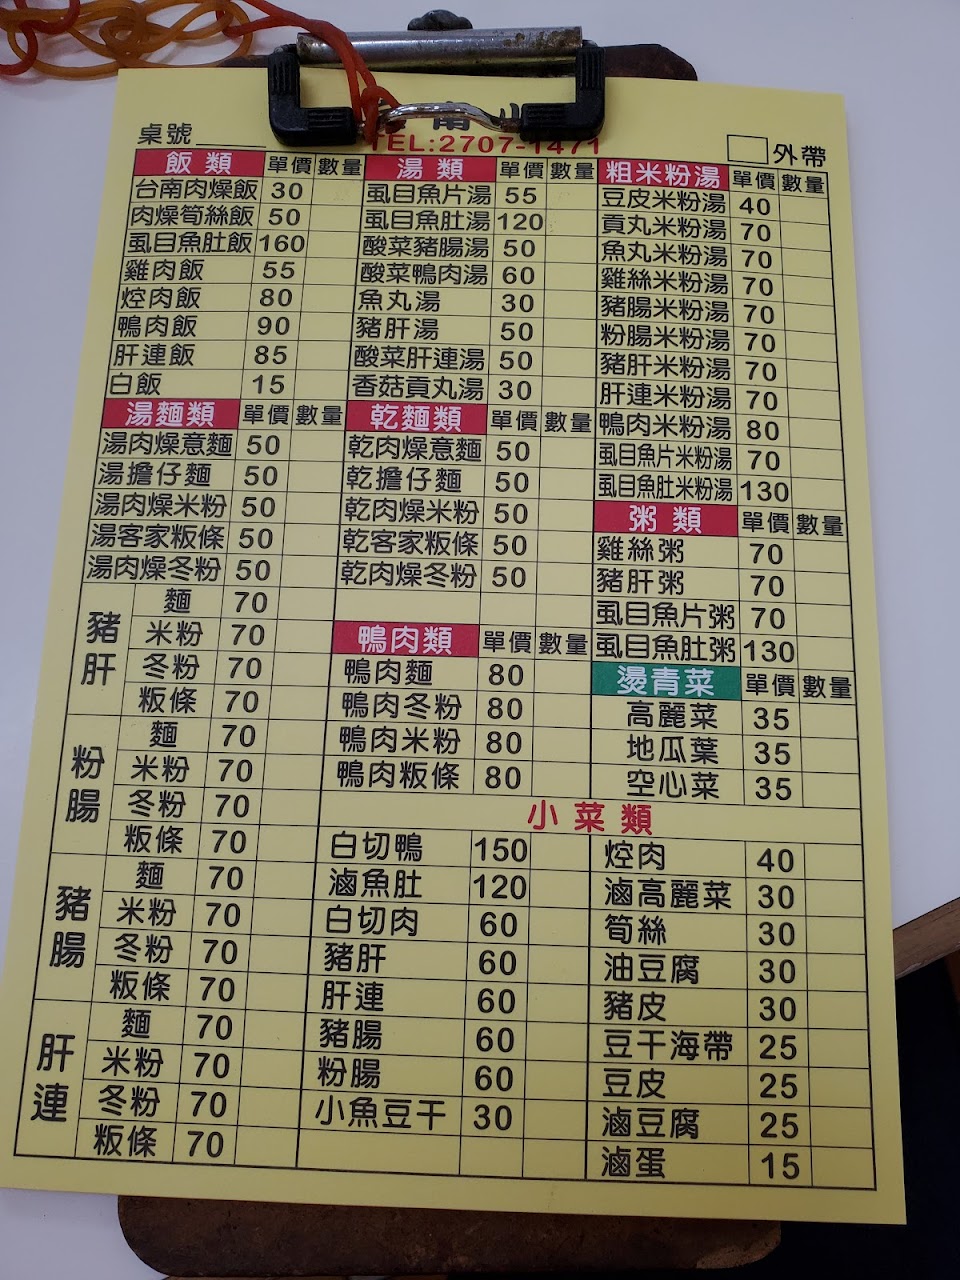 桌號
TEL:2707-1471
外帶
飯類 單價 數量
台南肉燥飯 30
肉燥筍絲飯 50
虱目魚肚飯 160
雞肉飯 55
焢肉飯 80
鴨肉飯 90
肝連飯 85
白飯 15
湯麵類 單價 數量
湯肉燥意麵 50
湯擔仔麵 50
湯肉燥米粉 50
湯客家粄條 50
湯肉燥冬粉 50
豬肝
麵 70
米粉 70
冬粉 70
粄條 70
粉腸
麵 70
米粉 70
冬粉 70
粄條 70
豬腸
麵 70
米粉 70
冬粉 70
粄條 70
肝連
麵 70
米粉 70
冬粉 70
粄條 70
湯類 單價 數量
虱目魚片湯 55
虱目魚肚湯 120
酸菜豬腸湯 50
酸菜鴨肉湯 60
魚丸湯 30
豬肝湯 50
酸菜肝連湯 50
香菇貢丸湯 30
乾麵類 單價 數量
乾肉燥意麵 50
乾擔仔麵 50
乾肉燥米粉 50
乾客家粄條 50
乾肉燥冬粉 50
鴨肉類 單價 數量
鴨肉麵 80
鴨肉冬粉 80
鴨肉米粉 80
鴨肉粄條 80
粗米粉湯 單價 數量
豆皮米粉湯 40
貢丸米粉湯 70
魚丸米粉湯 70
雞絲米粉湯 70
豬腸米粉湯 70
粉腸米粉湯 70
豬肝米粉湯 70
肝連米粉湯 70
鴨肉米粉湯 80
虱目魚片米粉湯 70
虱目魚肚米粉湯 130
粥類 單價 數量
雞絲粥 70
豬肝粥 70
虱目魚片粥 70
虱目魚肚粥 130
燙青菜 單價 數量
高麗菜 35
地瓜葉 35
空心菜 35
小菜類
白切鴨 150
滷魚肚 120
白切肉 60
豬肝 60
肝連 60
豬腸 60
粉腸 60
小魚豆干 30
焢肉 40
滷高麗菜 30
筍絲 30
油豆腐 30
豬皮 30
豆干海帶 25
豆皮 25
滷豆腐 25
滷蛋 15